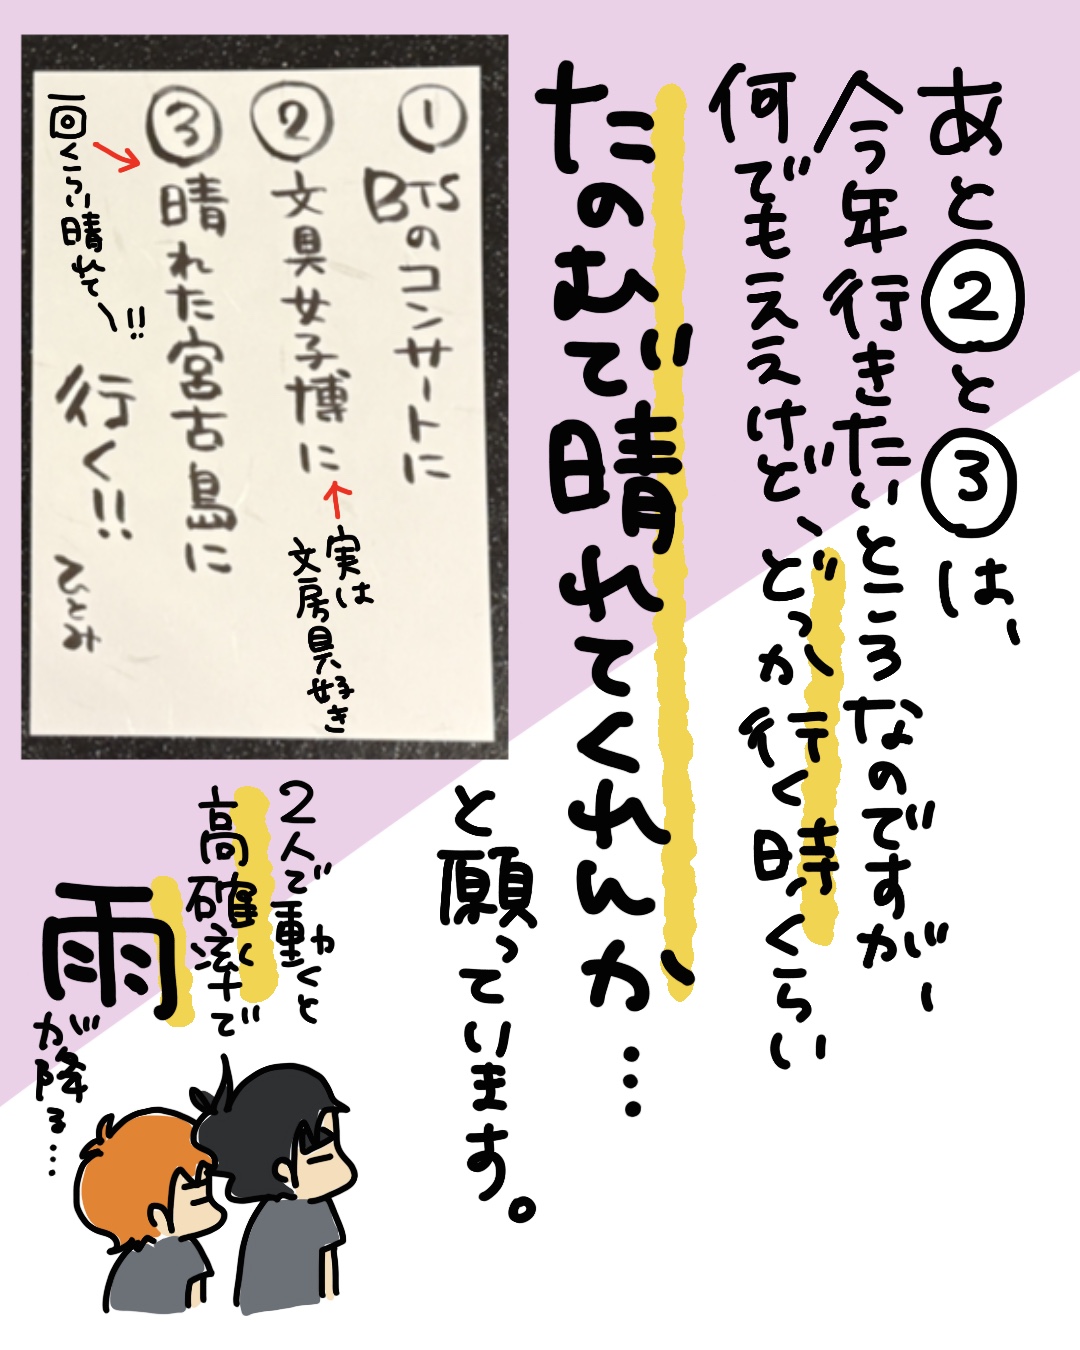 あと②と③は、
今年行きたいところなのですがー
何でもええけど、どっか行く時くらい
たのむで晴れてくれんか…
と願っています。
①BTSのコンサートに
②文具女子博に
実は
文房具好き
③晴れた宮古島に
一回くらい晴れて〜!!
行く!!
ひとみ
2人で動くと
高確率で
雨
が降る…